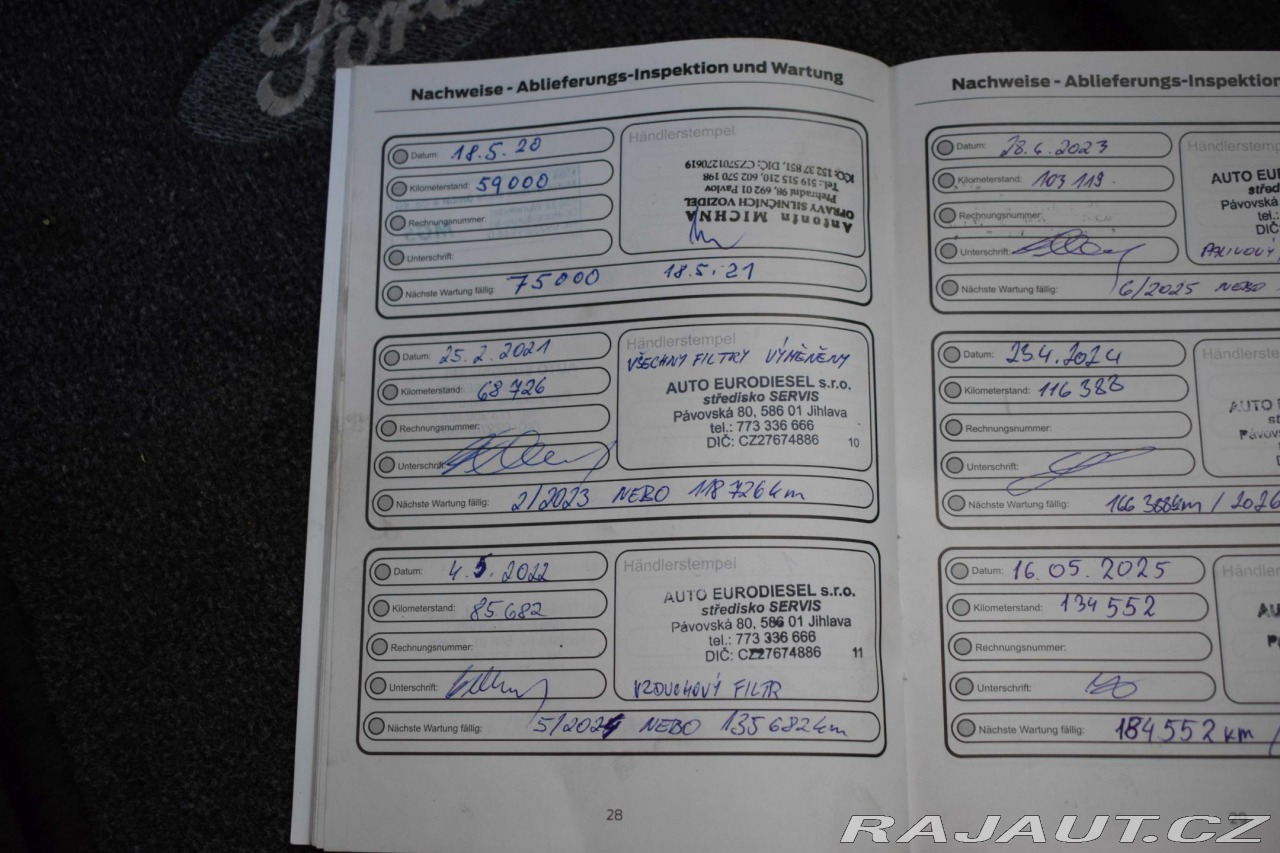 Ford
Nachweise - Ablieferungs-Inspektion und Wartung
Datum: 18.5.20
Kilometerstand: 59000
Rechnungsnummer:
Unterschrift:
Nächste Wartung fällig: 75000 18.5.21
Händlerstempel
Antonín MICHNA
OPRAVY SILNIČNÍCH VOZIDEL
Přehradní 98, 692 01 Pavlov
Tel.: 519 515 210, 602 570 198
IČO: 152 37 851, DIČ: CZ5701270619
Datum: 25.2.2021
Kilometerstand: 68 726
Rechnungsnummer:
Unterschrift:
Nächste Wartung fällig: 2/2023 NEBO 118 726 km
Händlerstempel
VŠECHNY FILTRY VÝMĚNĚNY
AUTO EURODIESEL s.r.o.
středisko SERVIS
Pávovská 80, 586 01 Jihlava
tel.: 773 336 666
DIČ: CZ27674886 10
Datum: 4.5.2022
Kilometerstand: 85 682
Rechnungsnummer:
Unterschrift:
Nächste Wartung fällig: 5/2024 NEBO 135 682 km
Händlerstempel
AUTO EURODIESEL s.r.o.
středisko SERVIS
Pávovská 80, 586 01 Jihlava
tel.: 773 336 666
DIČ: CZ27674886 11
VZDUCHOVÝ FILTR
28
Nachweise - Ablieferungs-Inspektion
Datum: 28.6.2023
Kilometerstand: 103 119
Rechnungsnummer:
Unterschrift:
Nächste Wartung fällig: 6/2025 NEBO
Händlerstempe
AUTO EUR
střed
Pávovská
tel.:
DIČ
PALIVOVÝ,
Datum: 23.4.2024
Kilometerstand: 116 388
Rechnungsnummer:
Unterschrift:
Nächste Wartung fällig: 166 388 km / 2026
Händlerste
AUTO
Pávov
Datum: 16.05.2025
Kilometerstand: 134 552
Rechnungsnummer:
Unterschrift:
Nächste Wartung fällig: 184 552 km /
Händler
29
RAJAUT.CZ